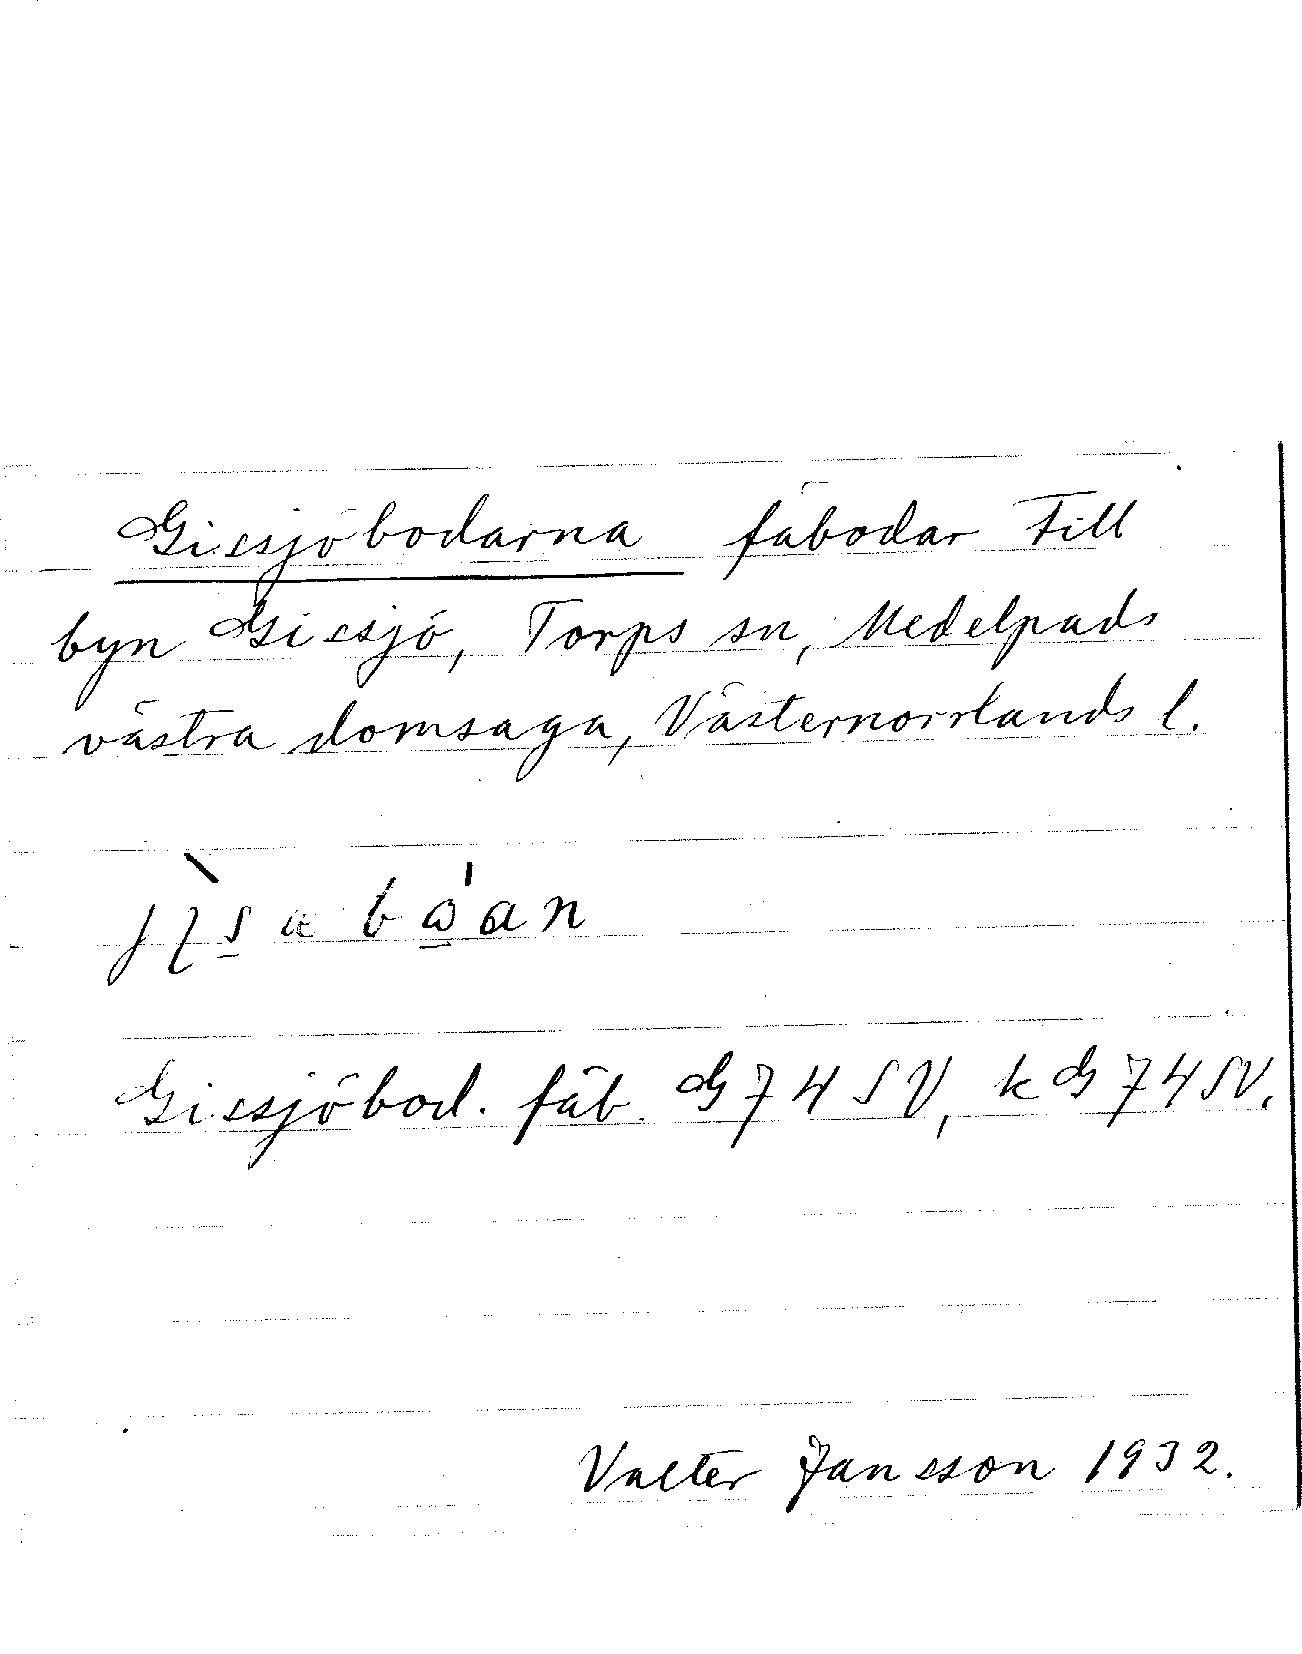 Gissjöbodarna fäbodar till
byn Gissjö, Torps sn, Medelpads
västra domsaga, Västernorrlands l.
Gissjöbod. fäb. G74SV, kG74SV.
Valter Jansson 1932.